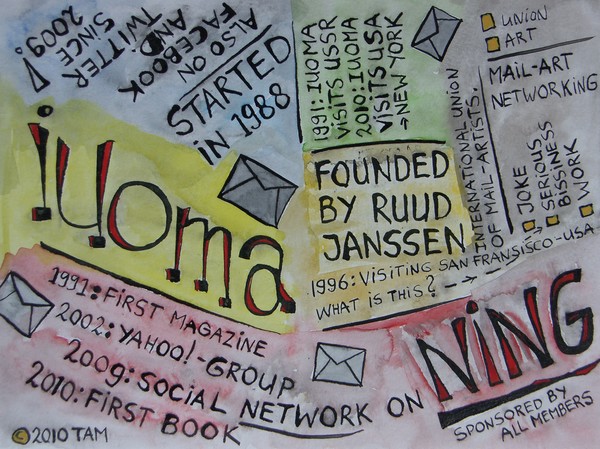 ALSO ON
FACEBOOK
AND
TWITTER
SINCE
2009!
STARTED
iN 1988
1991: IUOMA
VISITS USSR
2010: IUOMA
VISITS USA
→NEW YORK
UNION
ART
MAIL-ART
NETWORKING
INTERNATIONAL UNION
OF MAIL-ARTISTS.
JOKE
SERIOUS
BISSINESS
WORK
iuoma
FOUNDED
BY RUUD
JANSSEN
1996: VISITING SAN FRANSISCO-USA
WHAT IS THIS?
1991: FIRST MAGAZINE
2002: YAHOO!-GROUP
2009: SOCIAL NETWORK ON
NiNG
2010: FIRST BOOK
SPONSORED BY
ALL MEMBERS
© 2010 TAM